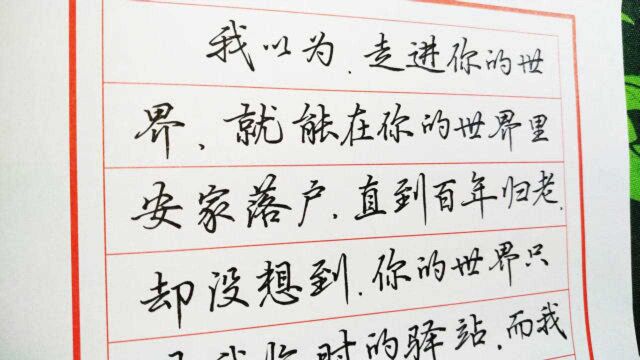 我以为.走进你的世
界、就能在你的世界里
安家落户.直到百年归老.
却没想到.你的世界只
是我临时的驿站.而我